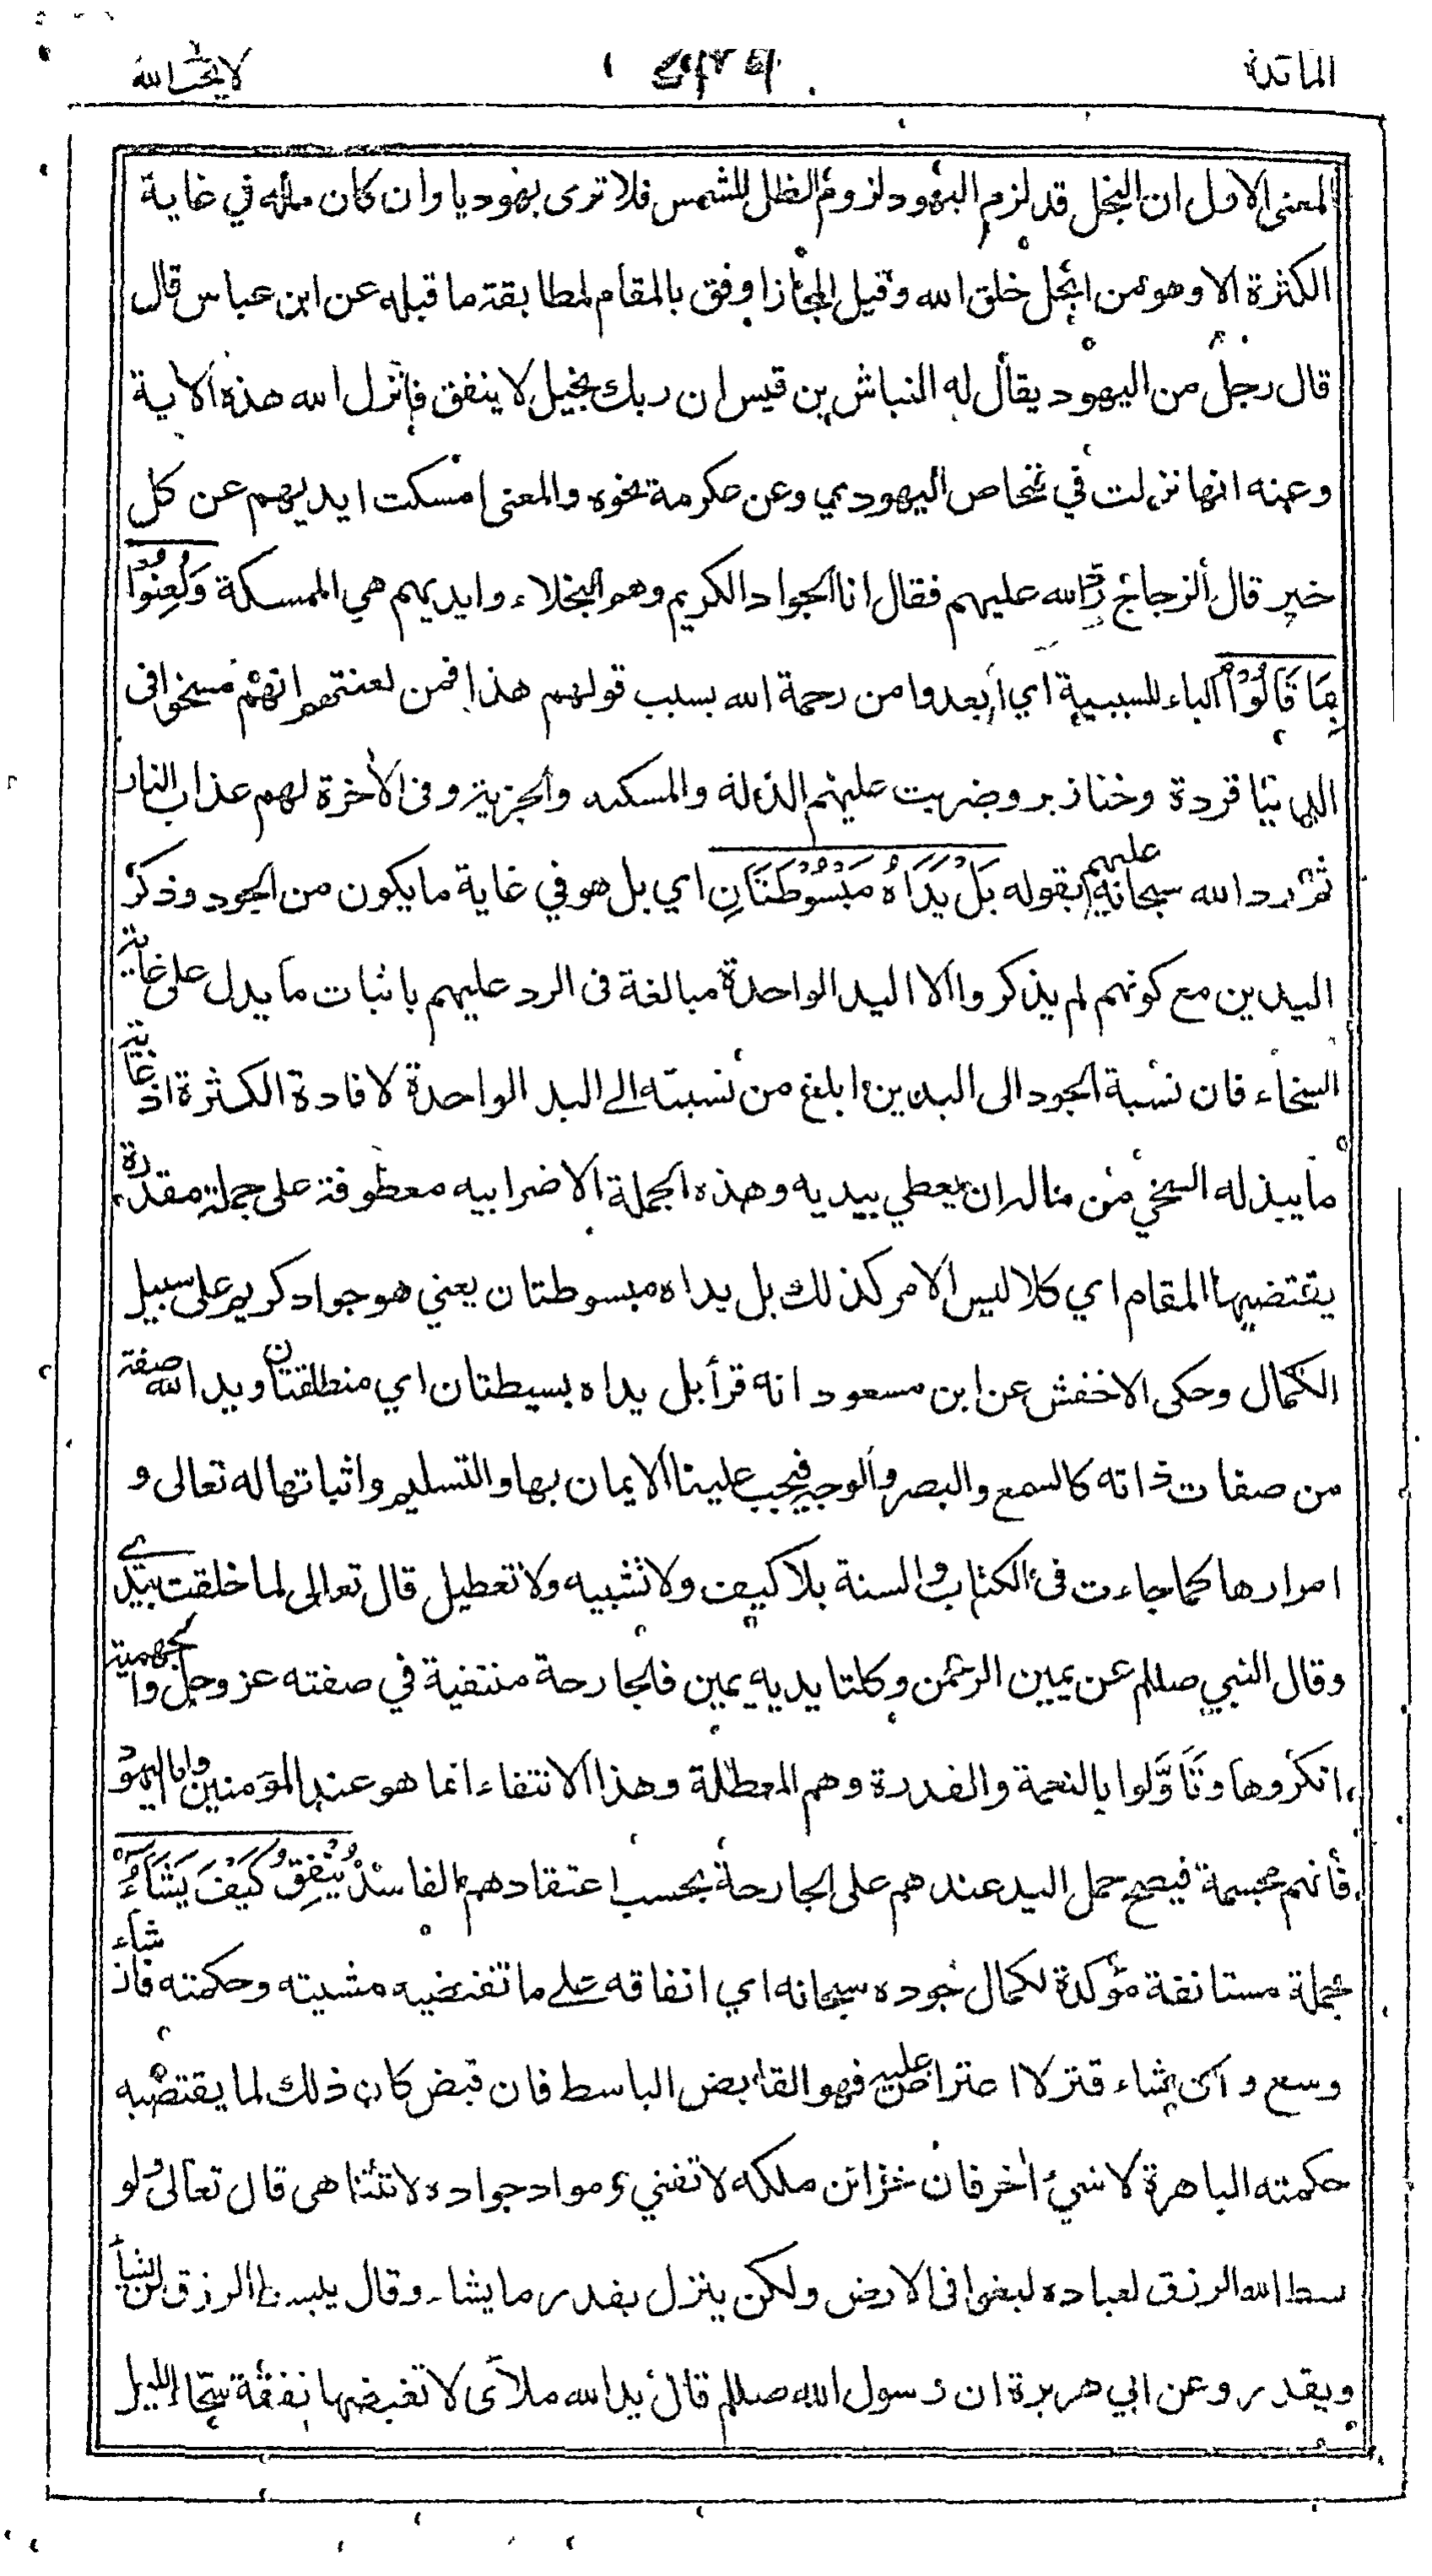 المائدة
لا يحب الله
المعنى الاول ان البخل قد لزم اليهود لزوم الظل للشمس فلا ترى يهوديا وان كان ماله في غاية
الكثرة الا وهو من ابخل خلق الله وقيل المجاز اوفق بالمقام لمطابقة ما قبله عن ابن عباس قال
قال رجل من اليهود يقال له النباش بن قيس ان ربك بخيل لا ينفق فانزل الله هذه الأية
وعنه انها نزلت في فنحاص اليهودي وعن عكرمة نحوه والمعنى امسكت ايديهم عن كل
خير قال الزجاج رد الله عليهم فقال انا الجواد الكريم وهم البخلاء وايديهم هي الممسكة وَلُعِنُوْا
بِمَا قَالُوْا الباء للسببية اي ابعدوا من رحمة الله بسبب قولهم هذا فمن لعنتهم انهم مسخوا فى
الدنيا قردة وخنازير وضربت عليهم الذلة والمسكنه والجزية وفى الأخرة لهم عذاب النار
ثم رد الله سبحانه عليهم بقوله بَلْ يَدَاهُ مَبْسُوْطَتَانِ اي بل هو في غاية ما يكون من الجود وذكر
اليدين مع كونهم لم يذكروا الا اليد الواحدة مبالغة فى الرد عليهم باثبات ما يدل على غاية
السخاء فان نسبة الجود الى اليدين ابلغ من نسبته الى اليد الواحدة لافادة الكثرة اذ غاية
ما يبذله السخي من ماله ان يعطي بيديه وهذه الجملة الاضرابيه معطوفة على جملة مقدرة
يقتضيها المقام اي كلا ليس الامر كذلك بل يداه مبسوطتان يعني هو جواد كريم على سبيل
الكمال وحكى الاخفش عن ابن مسعود انه قرأ بل يداه بسيطتان اي منطلقتان ويد الله صفة
من صفات ذاته كالسمع والبصر والوجه فيجب علينا الايمان بها والتسليم واثباتها له تعالى و
امرارها كما جاءت فى الكتاب والسنة بلا كيف ولا تشبيه ولا تعطيل قال تعالى لما خلقت بيدي
وقال النبي صللم عن يمين الرحمن وكلتا يديه يمين فالجارحة منتفية في صفته عز وجل والجهمية
انكروها وتَأوَّلوا بالنعمة والقدرة وهم المعطلة وهذا الانتفاء انما هو عند المؤمنين واما اليهود
فأنهم مجسمة فيصح حمل اليد عندهم على الجارحة بحسب اعتقادهم الفاسد يُنْفِقُ كَيْفَ يَشَاءُ
جملة مستانفة مؤكدة لكمال جوده سبحانه اي انفاقه على ما تقتضيه مشيته وحكمته فان شاء
وسع وان شاء قتر لا اعتراض عليه فهو القابض الباسط فان قبض كان ذلك لما يقتضيه
حكمته الباهرة لا شيء أخر فان خزائن ملكه لا تفني ومواد جواده لا تتناهى قال تعالى ولو
بسط الله الرزق لعباده لبغوا فى الارض ولكن ينزل بقدر ما يشاء وقال يبسط الرزق لمن يشاء
ويقدر وعن ابي هريرة ان رسول الله صللم قال يد الله ملآى لا تغيضها نفقة سحاء الليل